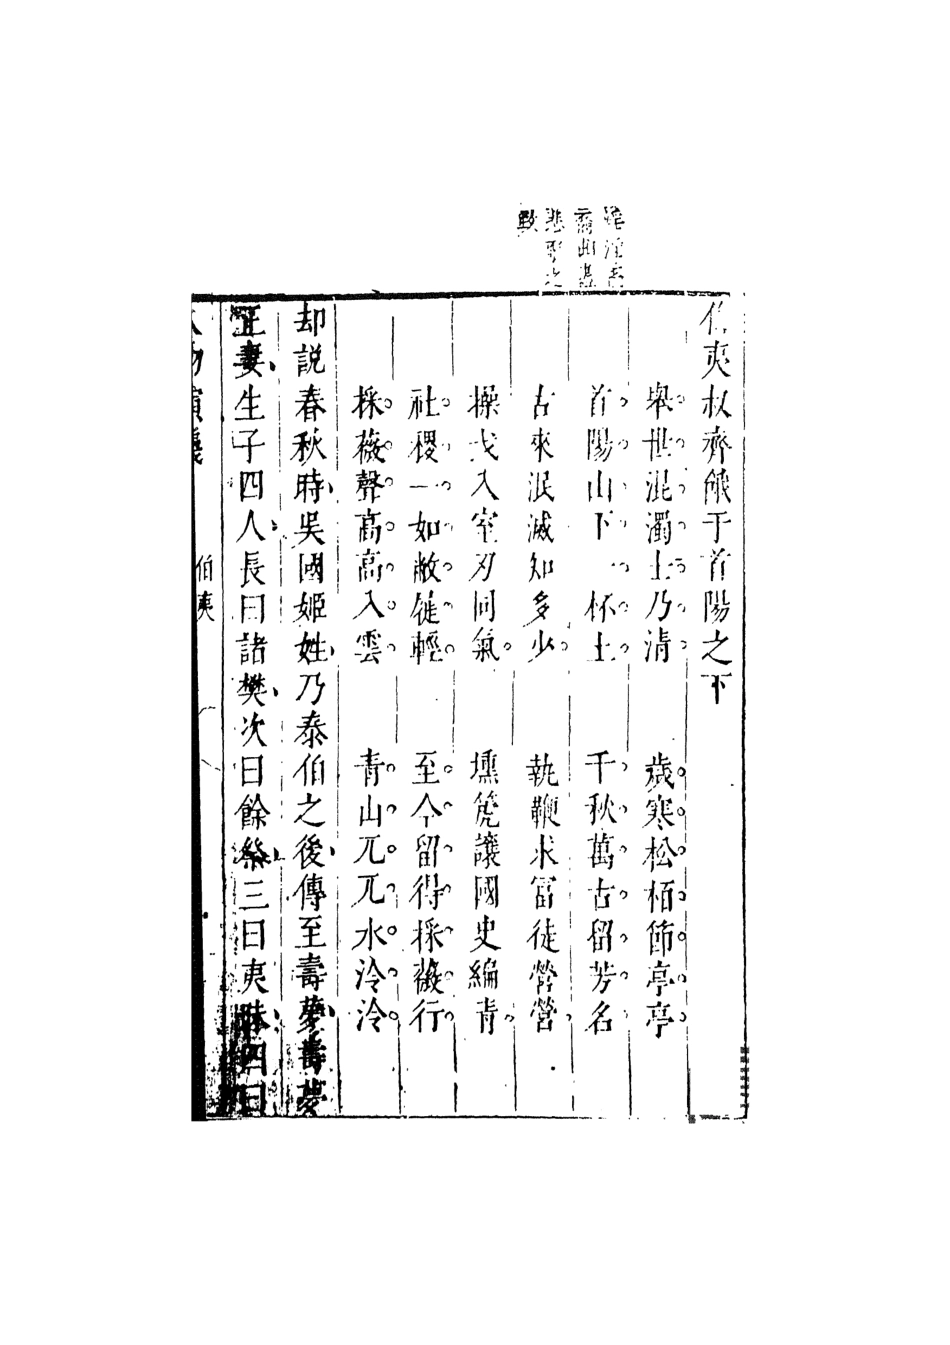 伯夷叔齊餓于首陽之下
舉世混濁士乃清 歲寒松栢節亭亭
首陽山下一杯土 千秋萬古留芳名
古來泯滅知多少 執鞭求富徒營營
操戈入室刃同氣 壎箎讓國史編青
社稷一如敝屣輕 至今留得採薇行
採薇聲高高入雲 青山兀兀水泠泠
却說春秋時吳國姬姓乃泰伯之後傳至壽夢壽夢
正妻生子四人長曰諸樊次曰餘祭三曰夷昧四曰
人物演義 伯夷